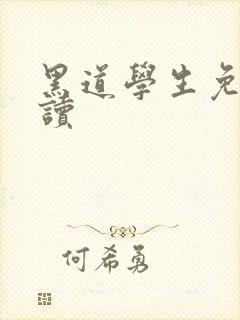 黑道學生免
讀
何希勇